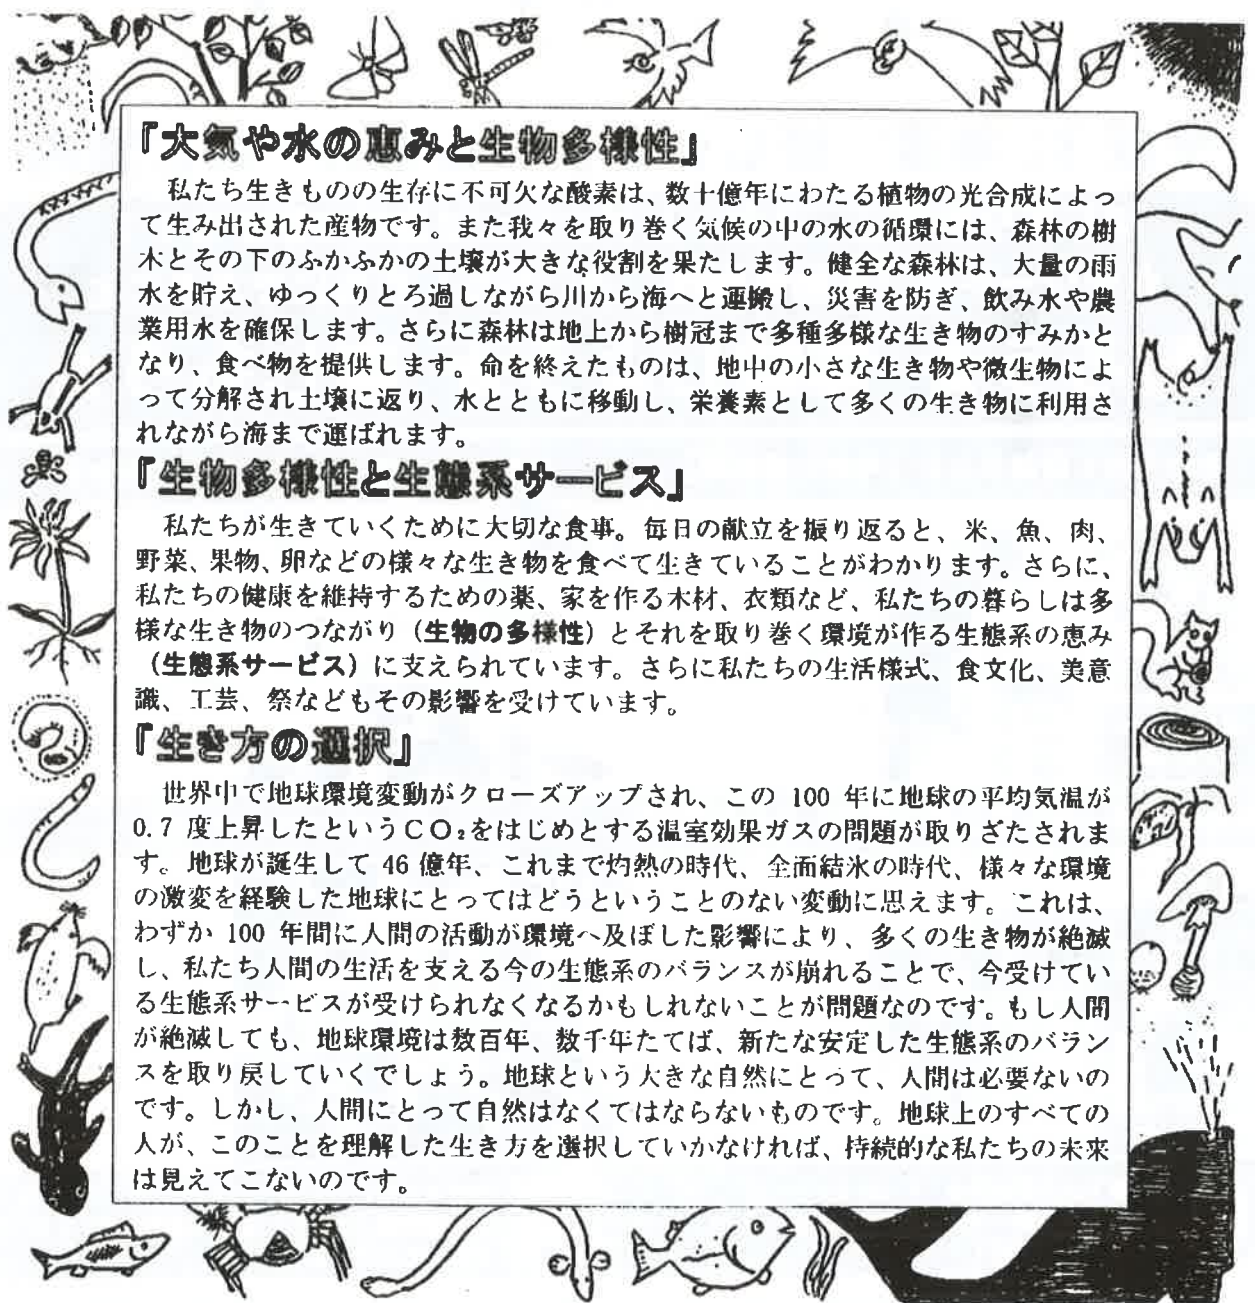 『大気や水の恵みと生物多様性』
私たち生きものの生存に不可欠な酸素は、数十億年にわたる植物の光合成によっ
て生み出された産物です。また我々を取り巻く気候の中の水の循環には、森林の樹
木とその下のふかふかの土壌が大きな役割を果たします。健全な森林は、大量の雨
水を貯え、ゆっくりとろ過しながら川から海へと運搬し、災害を防ぎ、飲み水や農
業用水を確保します。さらに森林は地上から樹冠まで多種多様な生き物のすみかと
なり、食べ物を提供します。命を終えたものは、地中の小さな生き物や微生物によ
って分解され土壌に返り、水とともに移動し、栄養素として多くの生き物に利用さ
れながら海まで運ばれます。
『生物多様性と生態系サービス』
私たちが生きていくために大切な食事。毎日の献立を振り返ると、米、魚、肉、
野菜、果物、卵などの様々な生き物を食べて生きていることがわかります。さらに、
私たちの健康を維持するための薬、家を作る木材、衣類など、私たちの暮らしは多
様な生き物のつながり（生物の多様性）とそれを取り巻く環境が作る生態系の恵み
（生態系サービス）に支えられています。さらに私たちの生活様式、食文化、美意
識、工芸、祭などもその影響を受けています。
『生き方の選択』
世界中で地球環境変動がクローズアップされ、この 100 年に地球の平均気温が
0.7 度上昇したというCO₂をはじめとする温室効果ガスの問題が取りざたされま
す。地球が誕生して 46 億年、これまで灼熱の時代、全面結氷の時代、様々な環境
の激変を経験した地球にとってはどうということのない変動に思えます。これは、
わずか 100 年間に人間の活動が環境へ及ぼした影響により、多くの生き物が絶滅
し、私たち人間の生活を支える今の生態系のバランスが崩れることで、今受けてい
る生態系サービスが受けられなくなるかもしれないことが問題なのです。もし人間
が絶滅しても、地球環境は数百年、数千年たてば、新たな安定した生態系のバラン
スを取り戻していくでしょう。地球という大きな自然にとって、人間は必要ないの
です。しかし、人間にとって自然はなくてはならないものです。地球上のすべての
人が、このことを理解した生き方を選択していかなければ、持続的な私たちの未来
は見えてこないのです。